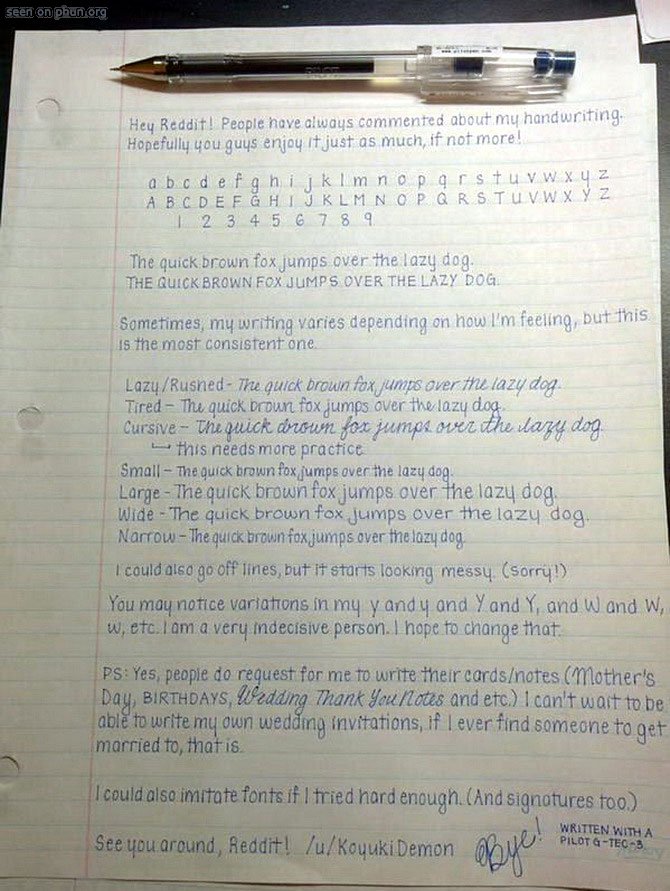 seen on phun.org
PILOT
Hey Reddit! People have always commented about my handwriting.
Hopefully you guys enjoy it just as much, if not more!
a b c d e f g h i j k l m n o p q r s t u v w x y z
A B C D E F G H I J K L M N O P Q R S T U V W X Y Z
1 2 3 4 5 6 7 8 9
The quick brown fox jumps over the lazy dog.
THE QUICK BROWN FOX JUMPS OVER THE LAZY DOG.
Sometimes, my writing varies depending on how I'm feeling, but this
is the most consistent one.
Lazy/Rushed - The quick brown fox jumps over the lazy dog.
Tired - The quick brown fox jumps over the lazy dog.
Cursive - The quick brown fox jumps over the lazy dog.
↳ this needs more practice
Small - The quick brown fox jumps over the lazy dog.
Large - The quick brown fox jumps over the lazy dog.
Wide - The quick brown fox jumps over the lazy dog.
Narrow - The quick brown fox jumps over the lazy dog.
I could also go off lines, but it starts looking messy. (Sorry!)
You may notice variations in my y and y and Y and Y, and W and W,
w, etc. I am a very indecisive person. I hope to change that.
PS: Yes, people do request for me to write their cards/notes (Mother's
Day, BIRTHDAYS, Wedding Thank You Notes and etc.) I can't wait to be
able to write my own wedding invitations, if I ever find someone to get
married to, that is.
I could also imitate fonts if I tried hard enough. (And signatures too.)
See you around, Reddit! /u/KoyukiDemon Bye! WRITTEN WITH A
PILOT G-TEC-3